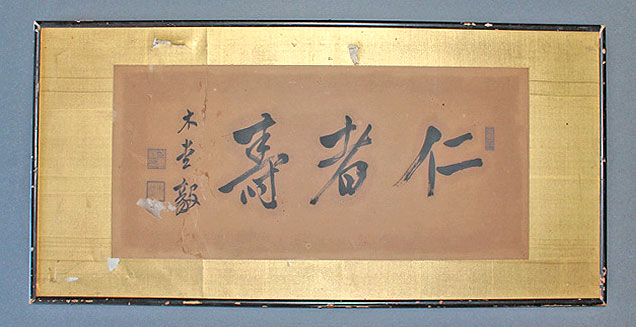 仁者寿
木堂毅